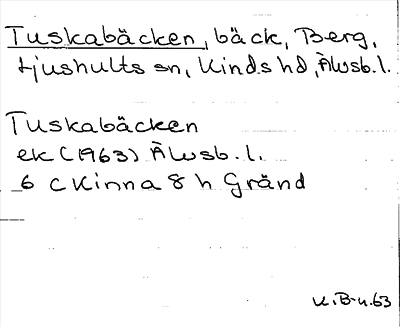 Tuskabäcken, bäck, Berg,
Ljushults sn, Kinds hd, Älvsb. l.
Tuskabäcken
ek (1963) Älvsb. l.
6 C Kinna 8 h Gränd
K.B-n. 63